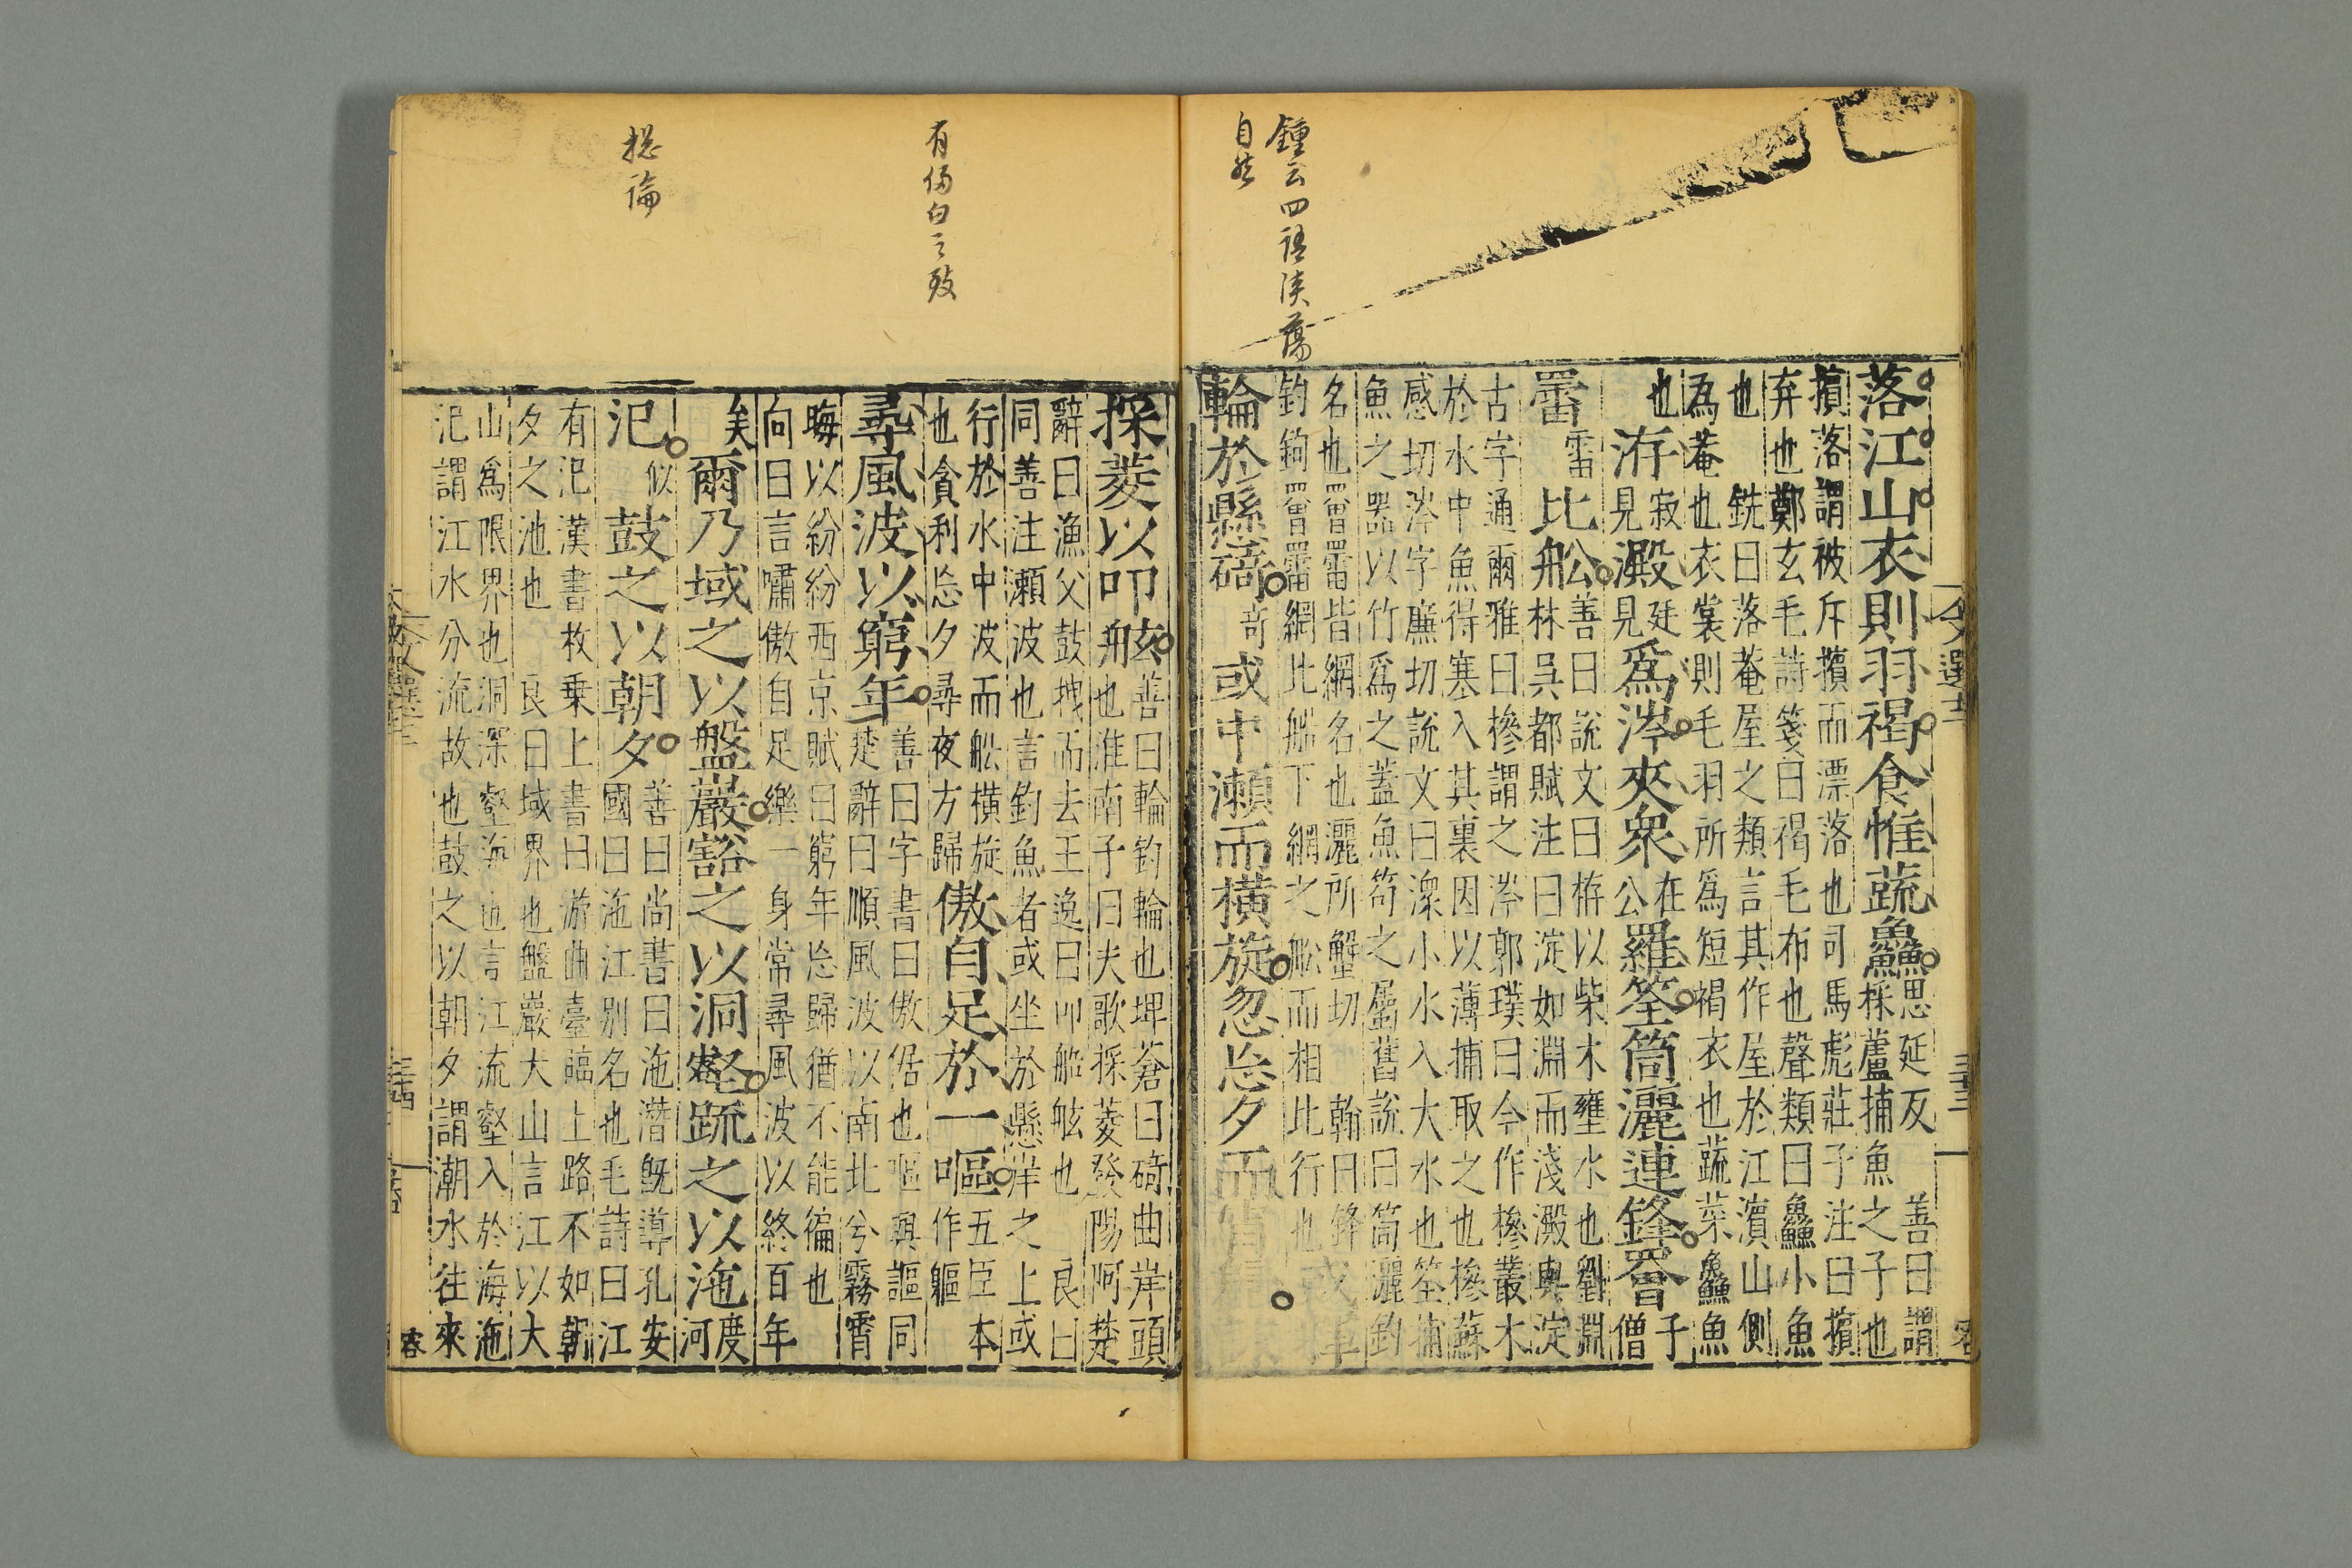 鍾云四語淡蕩
自然
落江山衣則羽褐食惟蔬鱻
思延反
採蘆捕魚之子也
善曰謂
擯落謂被斥擯而漂落也司馬彪莊子注曰擯
弃也鄭玄毛詩箋曰褐毛布也聲類曰鱻小魚
也 銑曰落菴屋之類言其作屋於江濱山側
為菴也衣裳則毛羽所為短褐衣也蔬菜鱻魚
也
洊
寂見
澱
廷見
爲涔夾衆
在公
羅筌筒灑連鋒罾
子僧
罶
雷
比舩
善曰說文曰栫以柴木壅水也劉淵
林吳都賦注曰淀如淵而淺澱與淀
古字通爾雅曰槮謂之涔郭璞曰今作槮叢木
於水中魚得寒入其裏因以薄捕取之也槮蘇
感切涔字廉切說文曰潨小水入大水也筌捕
魚之器以竹爲之蓋魚笱之屬舊說曰筒灑釣
名也罾罶皆網名也灑所蟹切 翰曰鋒
釣鉤罾罶網比船下網之舩而相比行也
輪於懸碕
奇
或中瀨而横旋忽忘夕而
文選十二
三十三
有傷白之致
總論
採菱以叩舷
善曰輪釣輪也埤蒼曰碕曲岸頭
也淮南子曰夫歌採菱發陽阿楚
辭曰漁父鼓拽而去王逸曰叩船舷也 良曰
同善注瀬波也言釣魚者或坐於懸岸之上或
行於水中波而舩横旋
也貪利忘夕尋夜方歸
傲自足於一嘔
五臣本
作軀
尋風波以窮年
善曰字書曰傲倨也嘔與謳同
楚辭曰順風波以南北兮霧霄
晦以紛紛西京賦曰窮年忘歸猶不能徧也
向曰言嘯傲自足樂一身常尋風波以終百年
矣
爾乃域之以盤巖豁之以洞壑䟽之以沲
度河
汜
似
鼓之以朝夕
善曰尚書曰沲潛旣導孔安
國曰沲江別名也毛詩曰江
有汜漢書枚乗上書曰游曲臺臨上路不如朝
夕之池也 良曰域界也盤巖大山言江以大
山爲限界也洞深壑海也言江流壑入於海沲
汜謂江水分流故也鼓之以朝夕謂潮水往來